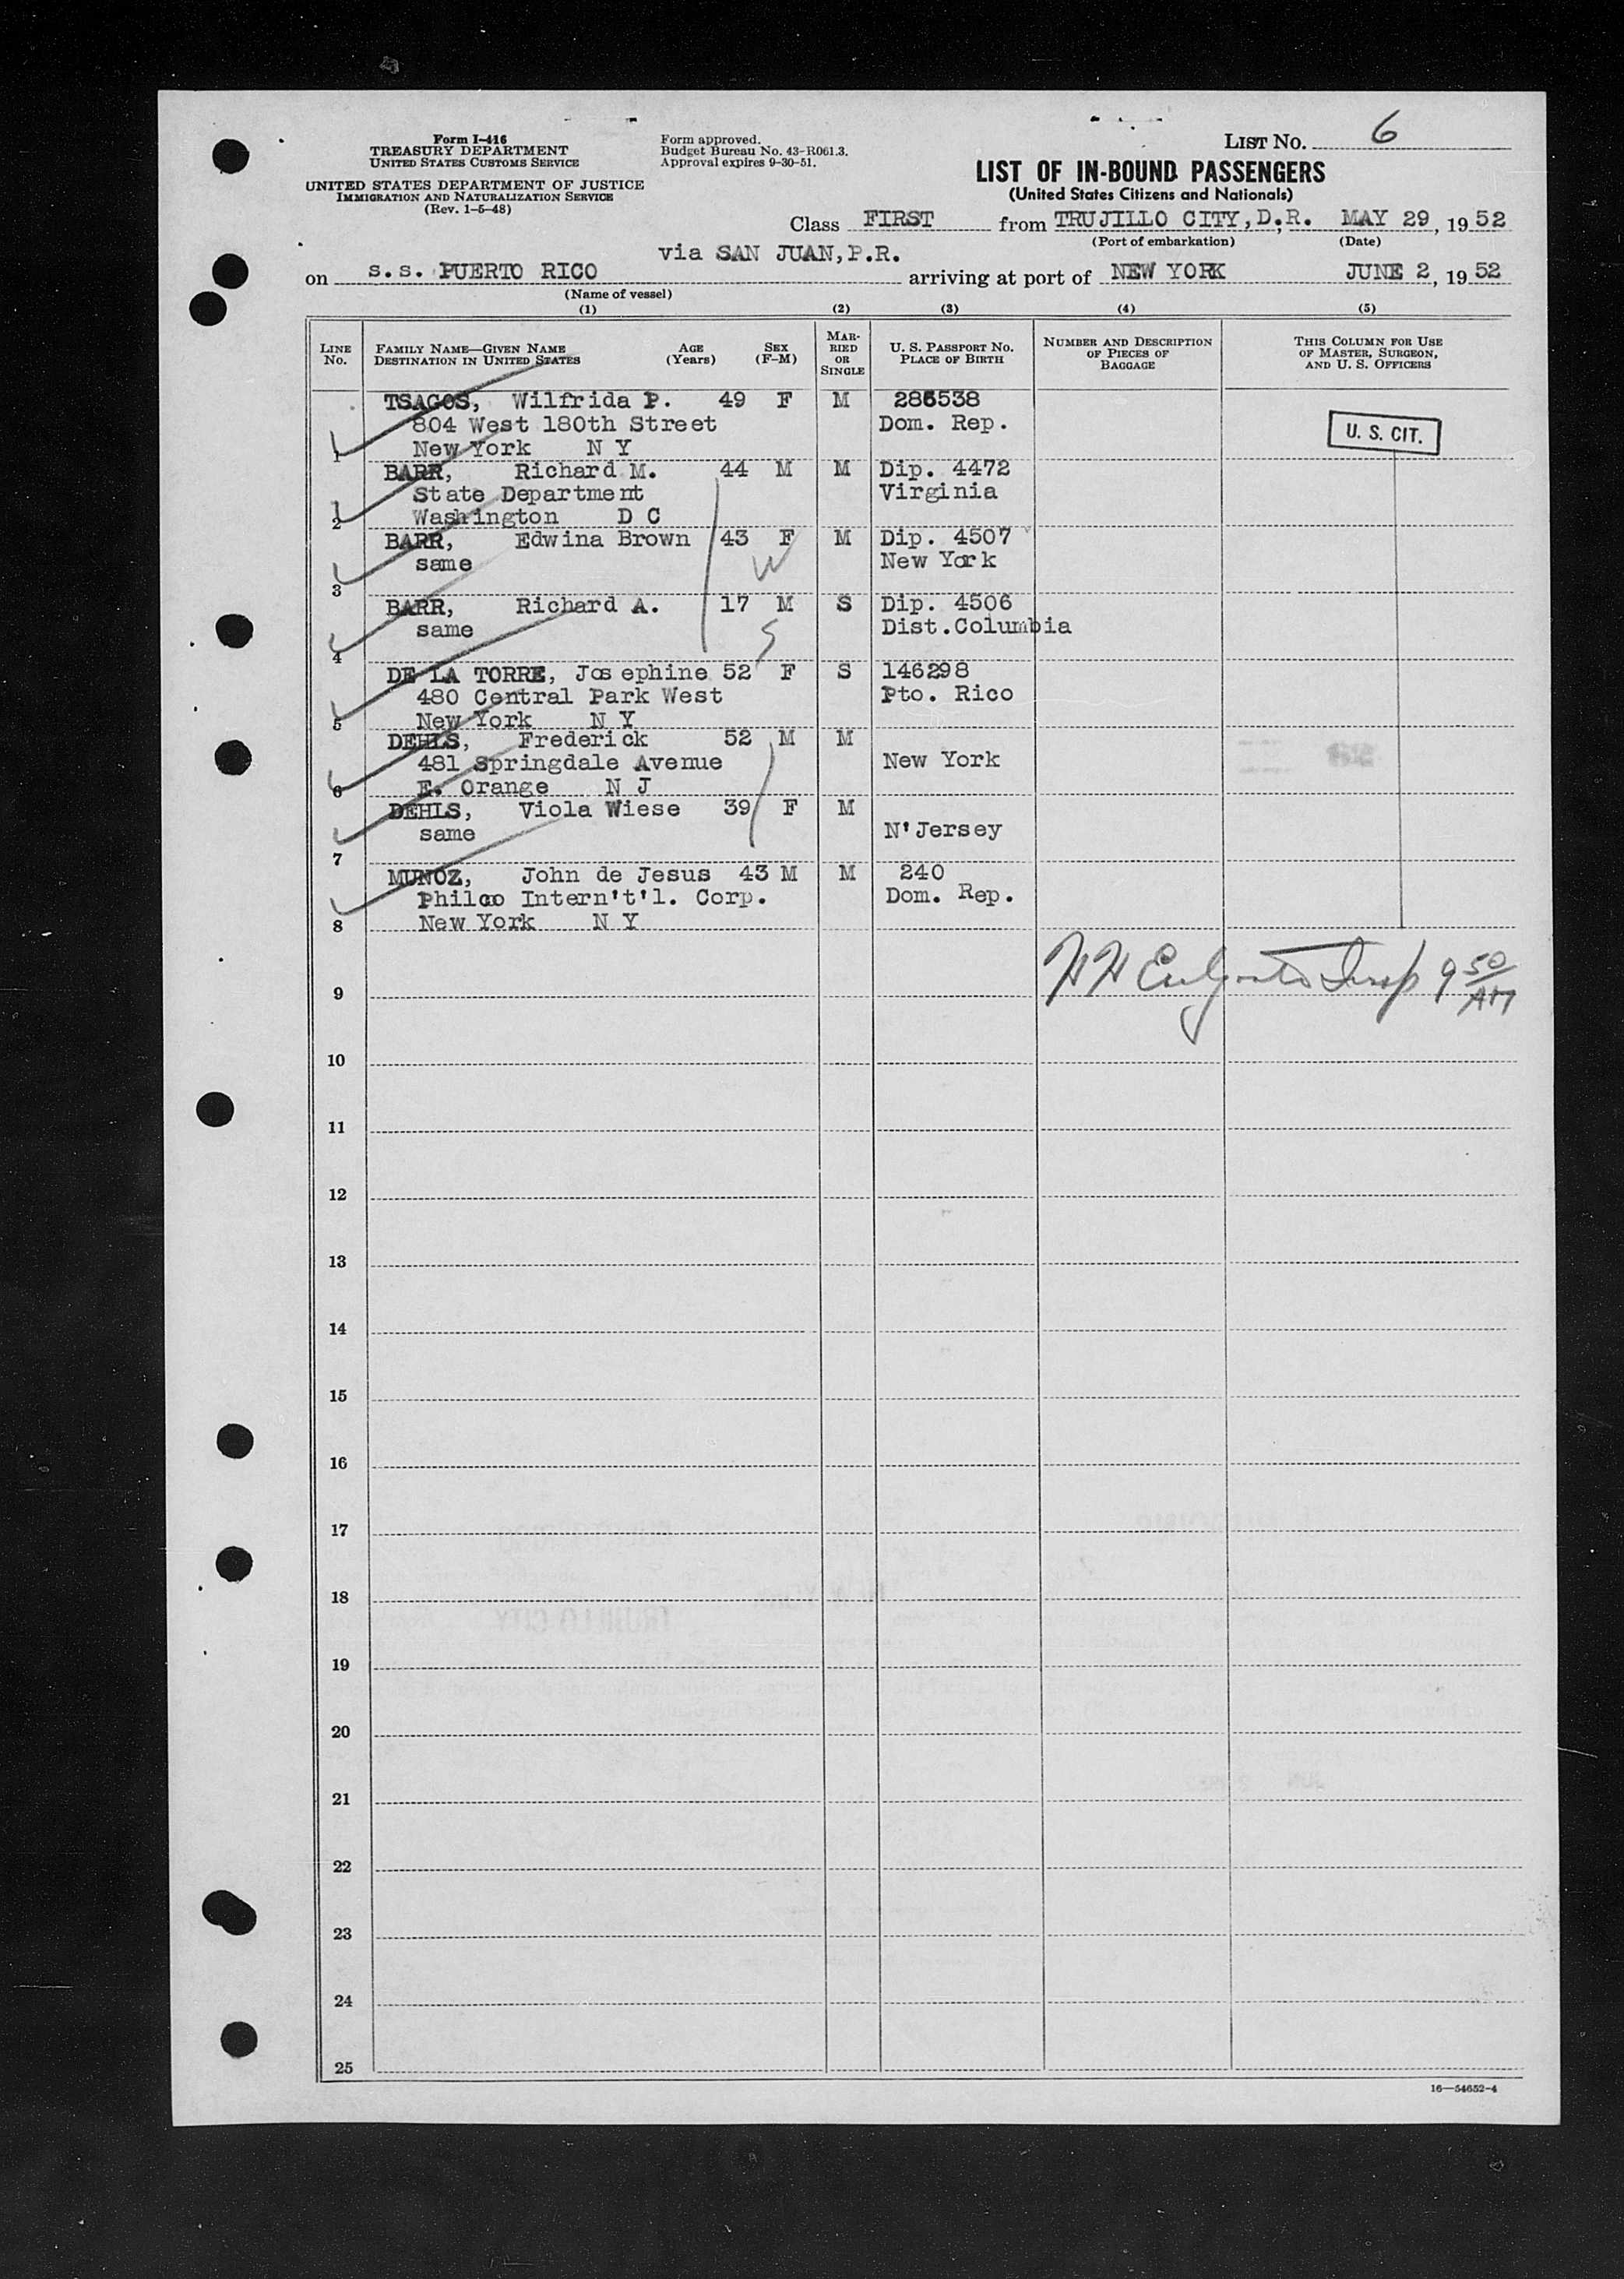 Form I-416
TREASURY DEPARTMENT
UNITED STATES CUSTOMS SERVICE
UNITED STATES DEPARTMENT OF JUSTICE
IMMIGRATION AND NATURALIZATION SERVICE
(Rev. 1-5-48)
Form approved.
Budget Bureau No. 43-R061.3.
Approval expires 9-30-51.
LIST No. 6
LIST OF IN-BOUND PASSENGERS
(United States Citizens and Nationals)
Class FIRST from TRUJILLO CITY, D.R. MAY 29, 1952
(Port of embarkation) (Date)
via SAN JUAN, P.R.
on s.s. PUERTO RICO arriving at port of NEW YORK JUNE 2, 1952
(Name of vessel)
(1) (2) (3) (4) (5)
LINE No. FAMILY NAME—GIVEN NAME DESTINATION IN UNITED STATES AGE (Years) SEX (F-M) MARRIED OR SINGLE U. S. PASSPORT No. PLACE OF BIRTH NUMBER AND DESCRIPTION OF PIECES OF BAGGAGE THIS COLUMN FOR USE OF MASTER, SURGEON, AND U. S. OFFICERS
TSAGOS, Wilfrida P. 49 F M 286538
804 West 180th Street Dom. Rep. U. S. CIT.
1 New York N Y
BARR, Richard M. 44 M M Dip. 4472
State Department Virginia
2 Washington D C
BARR, Edwina Brown 43 F M Dip. 4507
same W New York
3
BARR, Richard A. 17 M S Dip. 4506
same S Dist.Columbia
4
DE LA TORRE, Josephine 52 F S 146298
480 Central Park West Pto. Rico
5 New York N Y
DEHLS, Frederick 52 M M
481 Springdale Avenue New York
6 E. Orange N J
DEHLS, Viola Wiese 39 F M
same N'Jersey
7
MUNOZ, John de Jesus 43 M M 240
Philco Intern't'l. Corp. Dom. Rep.
8 New York N Y
9 Insp 9 50 AM
10
11
12
13
14
15
16
17
18
19
20
21
22
23
24
25
16—54652-4